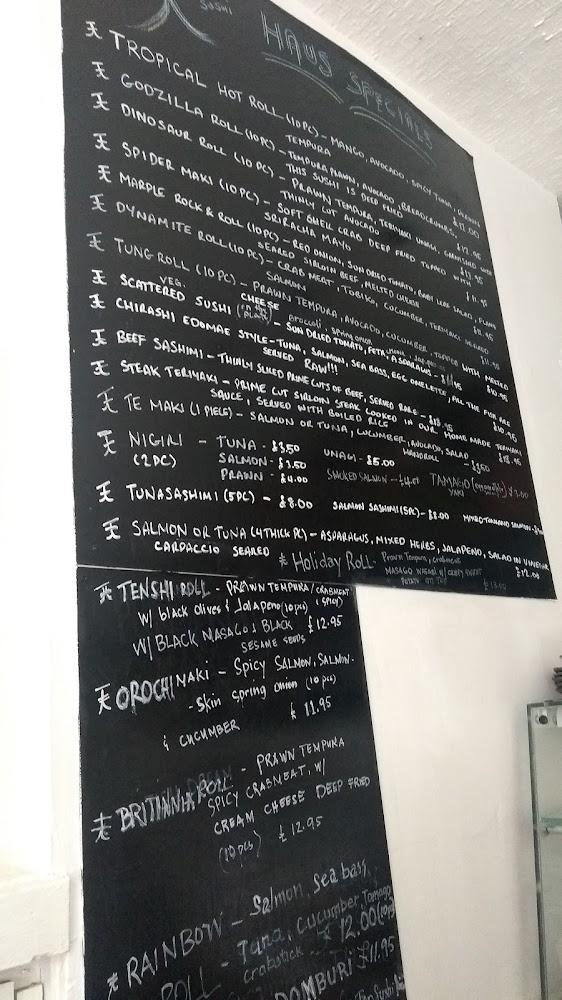 SUSHI
HAUS SPECIALS
天 TROPICAL HOT ROLL (10PC) - MANGO, AVOCADO, SPICY TUNA, PRAWN
TEMPURA £12.00
天 GODZILLA ROLL (10PC) - TEMPURA PRAWN, AVOCADO, BREADCRUMBS,
THIS SUSHI IS DEEP FRIED £12.95
天 DINOSAUR ROLL (10 PC) - PRAWN TEMPURA, TERIYAKI UNAGI, GARNISHED WITH
THINLY CUT AVOCADO
天 SPIDER MAKI (10PC) - SOFT SHELL CRAB DEEP FRIED TOPPED WITH
SRIRACHA MAYO
天 MARPLE ROCK & ROLL (10PC) - RED ONION, SUN DRIED TOMATO, BABY LEAF SALAD, FLAME
SEARED SIRLOIN BEEF, MELTED CHEESE
天 DYNAMITE ROLL (10PC) - CRAB MEAT, TOBIKO, CUCUMBER, TERIYAKI
SALMON
天 TUNG ROLL (10 PC) - PRAWN TEMPURA, AVOCADO, CUCUMBER, TOPPED WITH MELTED
CHEESE £10.95
天 SCATTERED VEG. SUSHI - SUN DRIED TOMATO, FETA, ASPARAGUS
broccoli, spring onion
天 CHIRASHI EDOMAE STYLE - TUNA, SALMON, SEA BASS, EGG OMELETTE, ALL THE FISH ARE
SERVED RAW!!! £10.95
天 BEEF SASHIMI - THINLY SLICED PRIME CUTS OF BEEF, SERVED RARE
天 STEAK TERIYAKI - PRIME CUT SIRLOIN STEAK COOKED IN OUR HOME MADE TERIYAKI
SAUCE, SERVED WITH BOILED RICE £18.95
天 TE MAKI (1 PIECE) - SALMON OR TUNA, CUCUMBER, AVOCADO, SALAD
HANDROLL
天 NIGIRI - TUNA - £3.50 UNAGI - £5.00
(2PC) SALMON - £3.50 SMOKED SALMON TAMAGO YAKI
PRAWN - £4.00
天 TUNA SASHIMI (5PC) - £8.00 SALMON SASHIMI (5PC) - £8.00
天 SALMON OR TUNA (4 THICK PC) - ASPARAGUS, MIXED HERBS, JALAPENO, SALAD IN VINEGAR
CARPACCIO SEARED £12.00
天 Holiday Roll - Prawn Tempura, crabmeat
天 TENSHI ROLL - PRAWN TEMPURA/CRABMEAT
W/ black Olives & Jalapeno (10 pcs) (SPICY)
W/ BLACK MASAGO & BLACK £12.95
SESAME SEEDS
天 OROCHI MAKI - SPICY SALMON, SALMON-
- Skin spring onion (10 pcs)
& CUCUMBER £11.95
天 BRITANNIA ROLL - PRAWN TEMPURA
SPICY CRABMEAT, W/
CREAM CHEESE DEEP FRIED
(10 pcs) £12.95
天 RAINBOW - Salmon, Sea bass,
ROLL - Tuna, Cucumber, Tamago
Crabstick - £12.00 (10pc)
DOMBURI £11.95